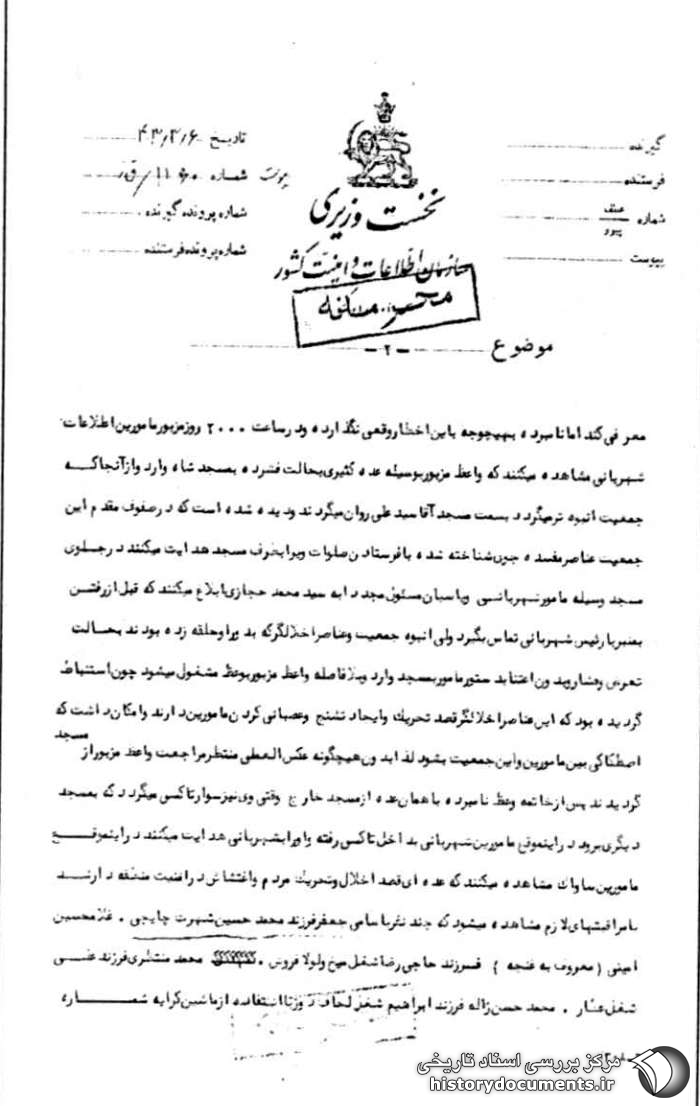 گیرنده
فرستنده
شماره عطف / پیرو
پیوست
نخست وزیری
سازمان اطلاعات و امنیت کشور
تاریخ ۴۳/۲/۶
شماره
شماره پرونده گیرنده
شماره پرونده فرستنده
موضوع
-۲-
معرفی کند اما نامبرده بهیچوجه باین اخطار وقعی نگذارده و در ساعت ۲۰۰۰ روز مزبور مامورین اطلاعات
شهربانی مشاهده میکنند که واعظ مزبور بوسیله عده کثیری بحالت فشرده بمسجد شاه وارد و از آنجا که
جمعیت انبوه تر میگردد بسمت مسجد آقا سید علی روان میگردند و دیده شده است که در صفوف مقدم این
جمعیت عناصر مفسده جوی شناخته شده با فرستادن صلوات ویرا بطرف مسجد هدایت میکنند در جلوی
مسجد وسیله مامور شهربانی و پاسبان مسئول مجددا به سید محمد حجازی ابلاغ میکنند که قبل از رفتن
بمنبر با رئیس شهربانی تماس بگیرد ولی انبوه جمعیت و عناصر اخلالگر که بدور او حلقه زده بودند بحالت
تعرض وفشار و بدون اعتنا بدستور مامور بمسجد وارد و بلافاصله واعظ مزبور بوعظ مشغول میشود چون استنباط
گردیده بود که این عناصر اخلالگر قصد تحریک و ایجاد تشنج و عصبانی کردن مامورین دارند و امکان داشت که
اصطکاکی بین مامورین و این جمعیت بشود لذا بدون هیچگونه عکس العملی منتظر مراجعت واعظ مزبور از مسجد
گردیدند پس از خاتمه وعظ نامبرده با همان عده از مسجد خارج وقتی وی نیز سوار تاکسی میگردد که بمسجد
دیگری برود در اینموقع مامورین شهربانی بداخل تاکسی رفته و او را بشهربانی هدایت میکنند در اینموقع
مامورین ساواک مشاهده میکنند که عده ای قصد اخلال و تحریک مردم و اغتشاش در امنیت منطقه دارند
با مراقبتهای لازم مشاهده میشود که چند نفر باسامی جعفر فرزند محمد حسین شهرت چایچی . غلامحسین
امینی (معروف به غنچه) فرزند حاجی رضا شغل میخ و لولا فروش . محمد منتظری فرزند علی
شغل عطار . محمد حسن ژاله فرزند ابراهیم شغل لحاف دوز با استفاده از ماشین کرایه شماره
مرکز بررسی اسناد تاریخی
historydocuments.ir